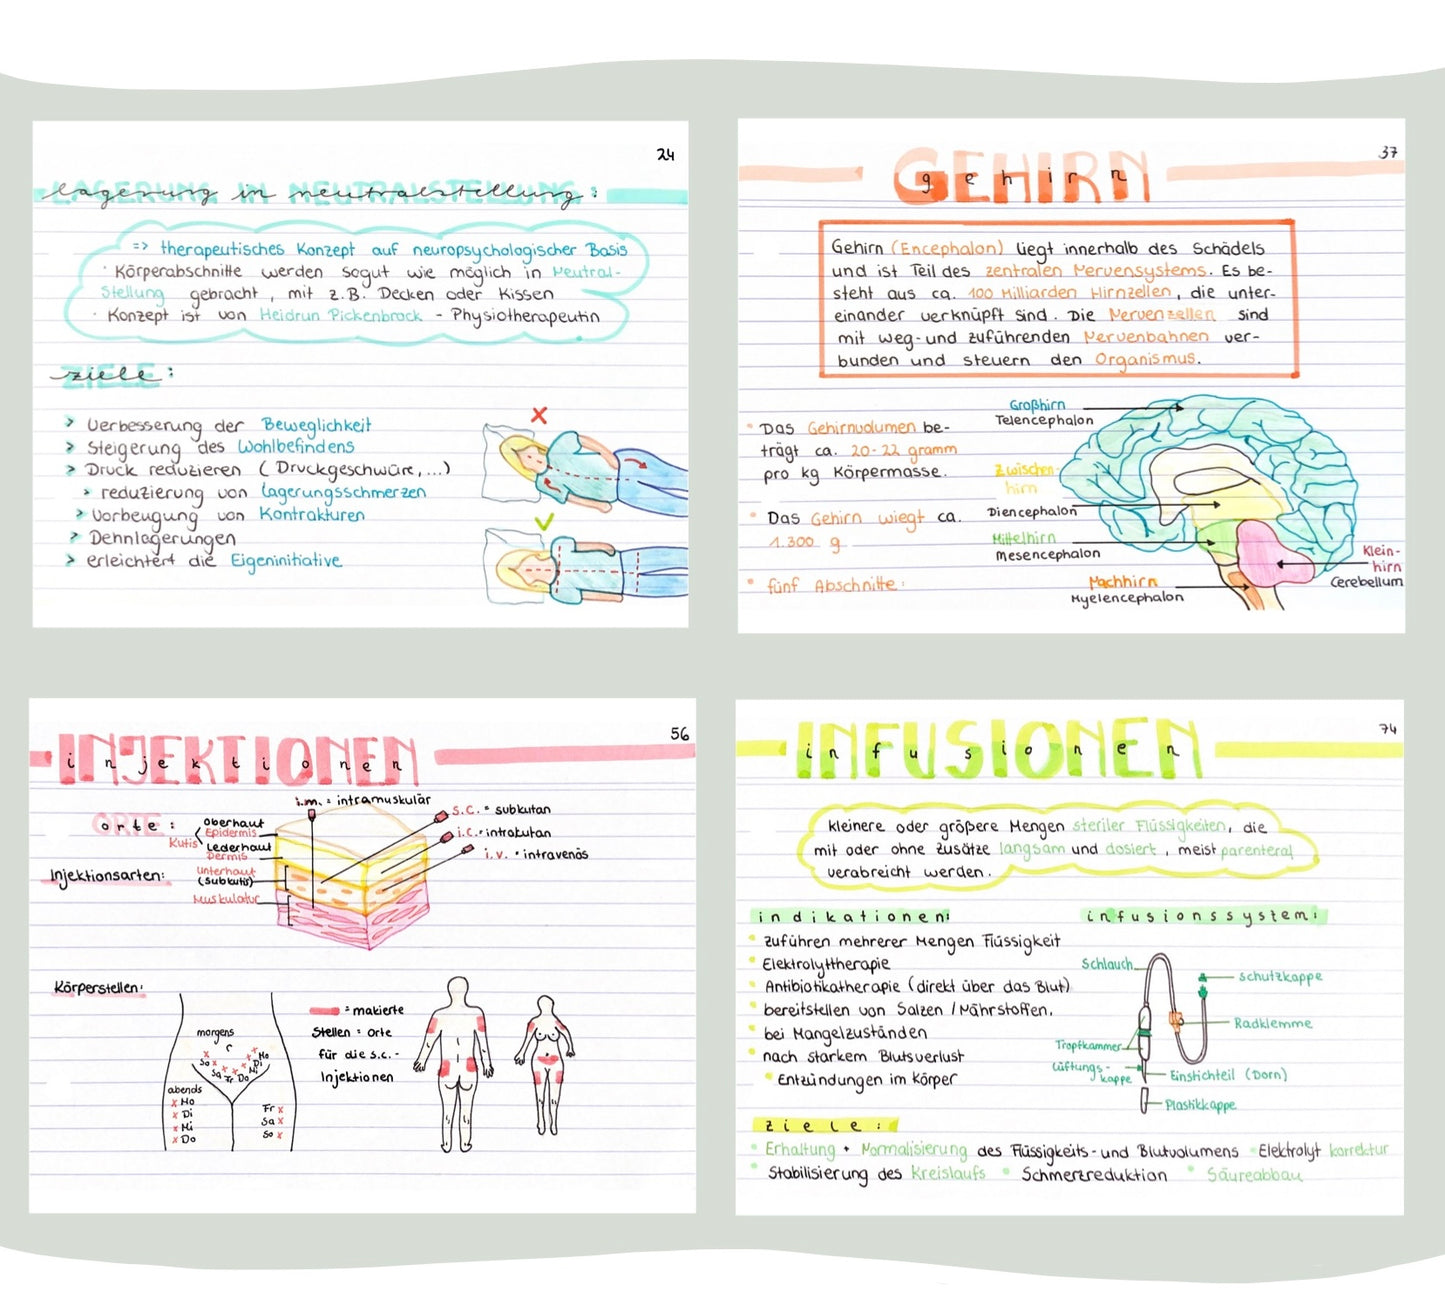 24
lagerung in neutralstellung:
=> therapeutisches Konzept auf neuropsychologischer Basis
· Körperabschnitte werden sogut wie möglich in Neutral-
Stellung gebracht, mit z.B. Decken oder Kissen
· Konzept ist von Heidrun Pickenbrock - Physiotherapeutin
ziele:
> Verbesserung der Beweglichkeit
> Steigerung des Wohlbefindens
> Druck reduzieren (Druckgeschwüre,...)
> reduzierung von Lagerungsschmerzen
> Vorbeugung von Kontrakturen
> Dehnlagerungen
> erleichtert die Eigeninitiative
37
GEHIRN
gehirn
Gehirn (Encephalon) liegt innerhalb des Schädels
und ist Teil des zentralen Nervensystems. Es be-
steht aus ca. 100 Milliarden Hirnzellen, die unter-
einander verknüpft sind. Die Nervenzellen sind
mit weg- und zuführenden Nervenbahnen ver-
bunden und steuern den Organismus.
• Das Gehirnvolumen be-
trägt ca. 20-22 gramm
pro kg Körpermasse.
• Das Gehirn wiegt ca.
1.300 g
• fünf Abschnitte:
Großhirn
Telencephalon
Zwischen-
hirn
Diencephalon
Mittelhirn
Mesencephalon
Nachhirn
Myelencephalon
Klein-
hirn
Cerebellum
56
INJEKTIONEN
injektionen
orte:
Injektionsarten:
i.m. = intramuskulär
s.c. = subkutan
i.c. = intrakutan
i.v. = intravenös
Oberhaut
Epidermis
Kutis
Lederhaut
Dermis
Unterhaut
(Subkutis)
Muskulatur
Körperstellen:
morgens
So
Sa
Fr
Do
Mi
Di
Mo
abends
x Mo
x Di
x Mi
x Do
Fr x
Sa x
So x
= makierte
Stellen = Orte
für die s.c.-
Injektionen
74
INFUSIONEN
infusionen
kleinere oder größere Mengen steriler Flüssigkeiten, die
mit oder ohne Zusätze langsam und dosiert, meist parenteral
verabreicht werden.
indikationen:
• zuführen mehrerer Mengen Flüssigkeit
• Elektrolyttherapie
• Antibiotikatherapie (direkt über das Blut)
• bereitstellen von Salzen / Nährstoffen,
• bei Mangelzuständen
• nach starkem Blutsverlust
• Entzündungen im Körper
infusionssystem:
Schlauch
Schutzkappe
Radklemme
Tropfkammer
Lüftungs-
kappe
Einstichteil (Dorn)
Plastikkappe
ziele:
• Erhaltung + Normalisierung des Flüssigkeits- und Blutvolumens • Elektrolyt korrektur
• Stabilisierung des Kreislaufs • Schmerzreduktion • Säureabbau